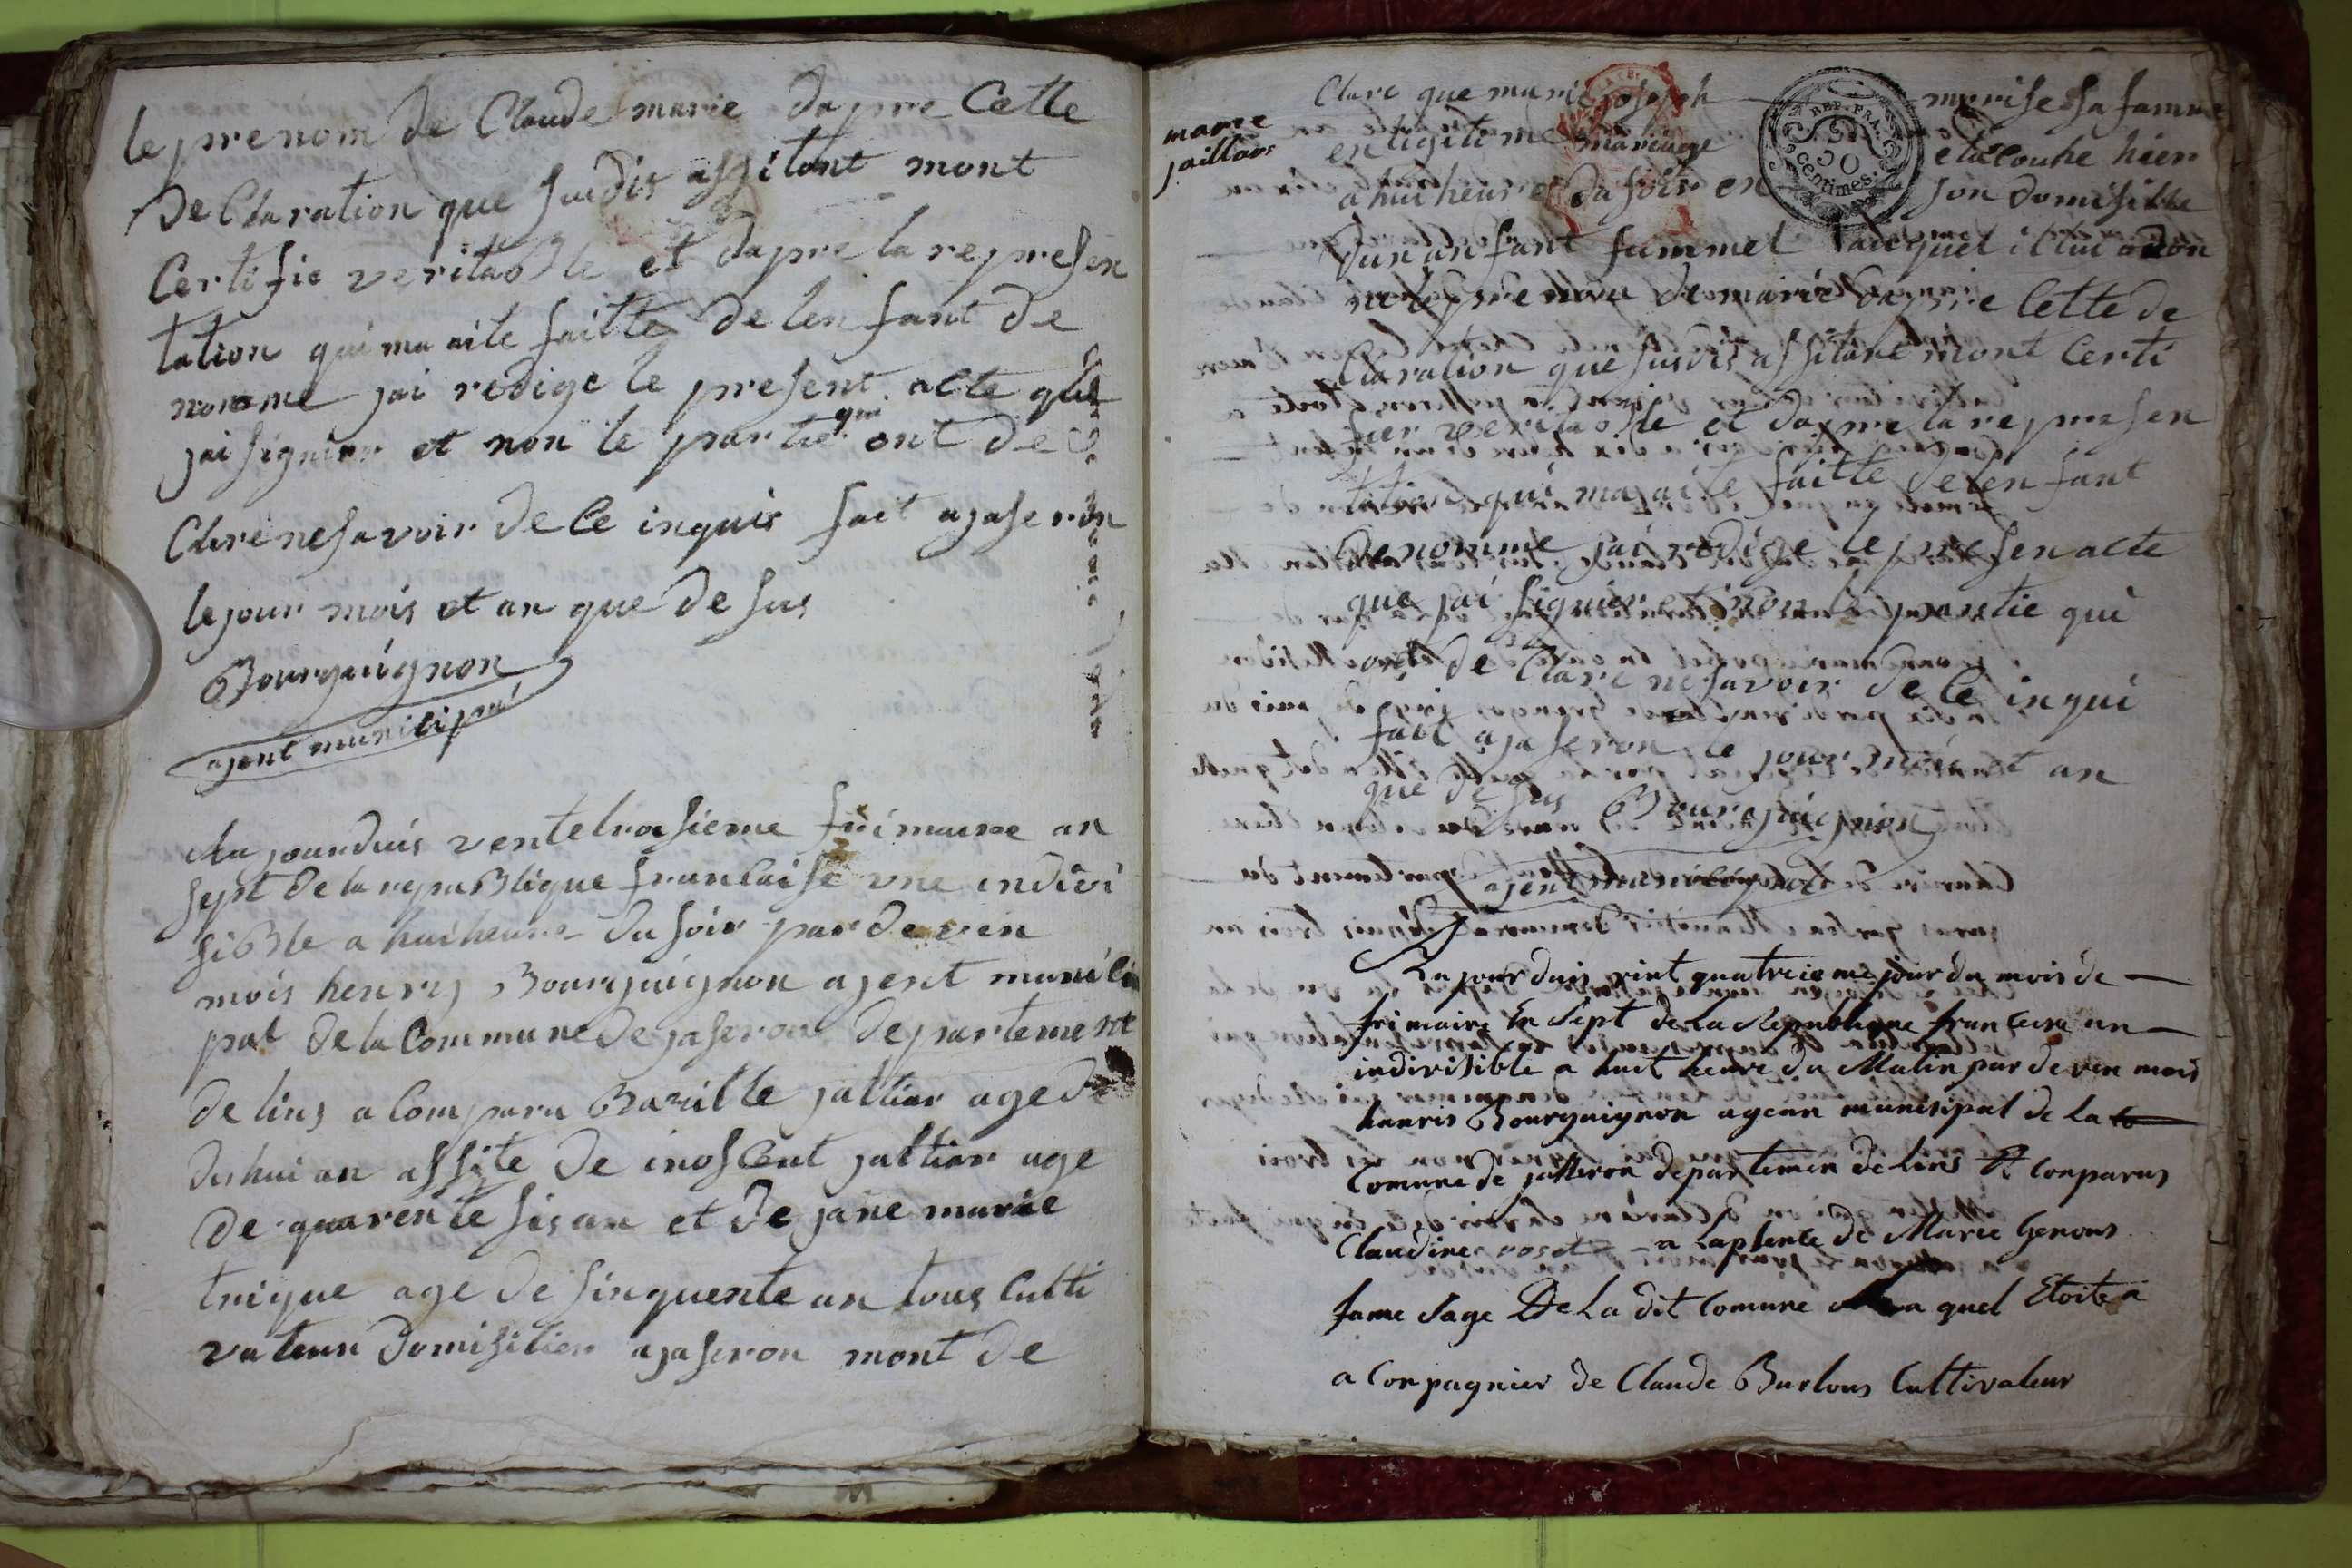 le prenom de Claude marie dapre Cette
de Claration que susdis assitant mont
Certifie veritable et dapre la represen
tation qui ma aite faitte de lenfant de
nomme jai redige le present acte que
jai signier et non le partie qui ont de
Clare ne savoir de Ce inquis fait a jaseron
le jour mois et an que de sus
Bourguignon
agent municipal
Au jourduis ventetroisieme frimaire an
sept de la republique francaise vne indivi
sible a hui heure du soir par de ven
mois henry Bourguignon agent munici
pal de la Commune de jaseron departement
de lins a Comparu Bazille jallior age de
dishui an assite de inoscent jallior age
de quarente sis an et de jane marie
trique age de sinquente an tous Culti
vateur domisilier a jaseron mont de
marie
jaillour
Clare que marie joseph morise sa famme
en legitime mariage et acouche hier
a hui heure du soir en son domisille
dun anfant fummel auquel il lui a don
ne le prenom de marie dapre Cette de
Claration que susdis assitant mont Certi
fier veritable et dapre la represen
tation qui ma aite faitte de lenfant
denomme jai redige le presen acte
que jai signier et non le partie qui
on de Clare ne savoir de Ce inqui
fait a jaseron le jour mois et an
que de sus Bourguignon
agent municipal
REP. FRA.
50
centimes.
Au jour duis vint quatreieme jour du mois de
frimaire en sept de La Republique franceise un
indivisible a huit heure du Matin par de ven mois
hanris Bourguignon agean munisipal de La
Comune de jasseron departemen de Lins Et Conparus
Claudine roset a Lapsence de Marie Genous
fame Sage De La dit Comune a quel Etoite a
a Conpagnier de Claude Burlous Cultivateur